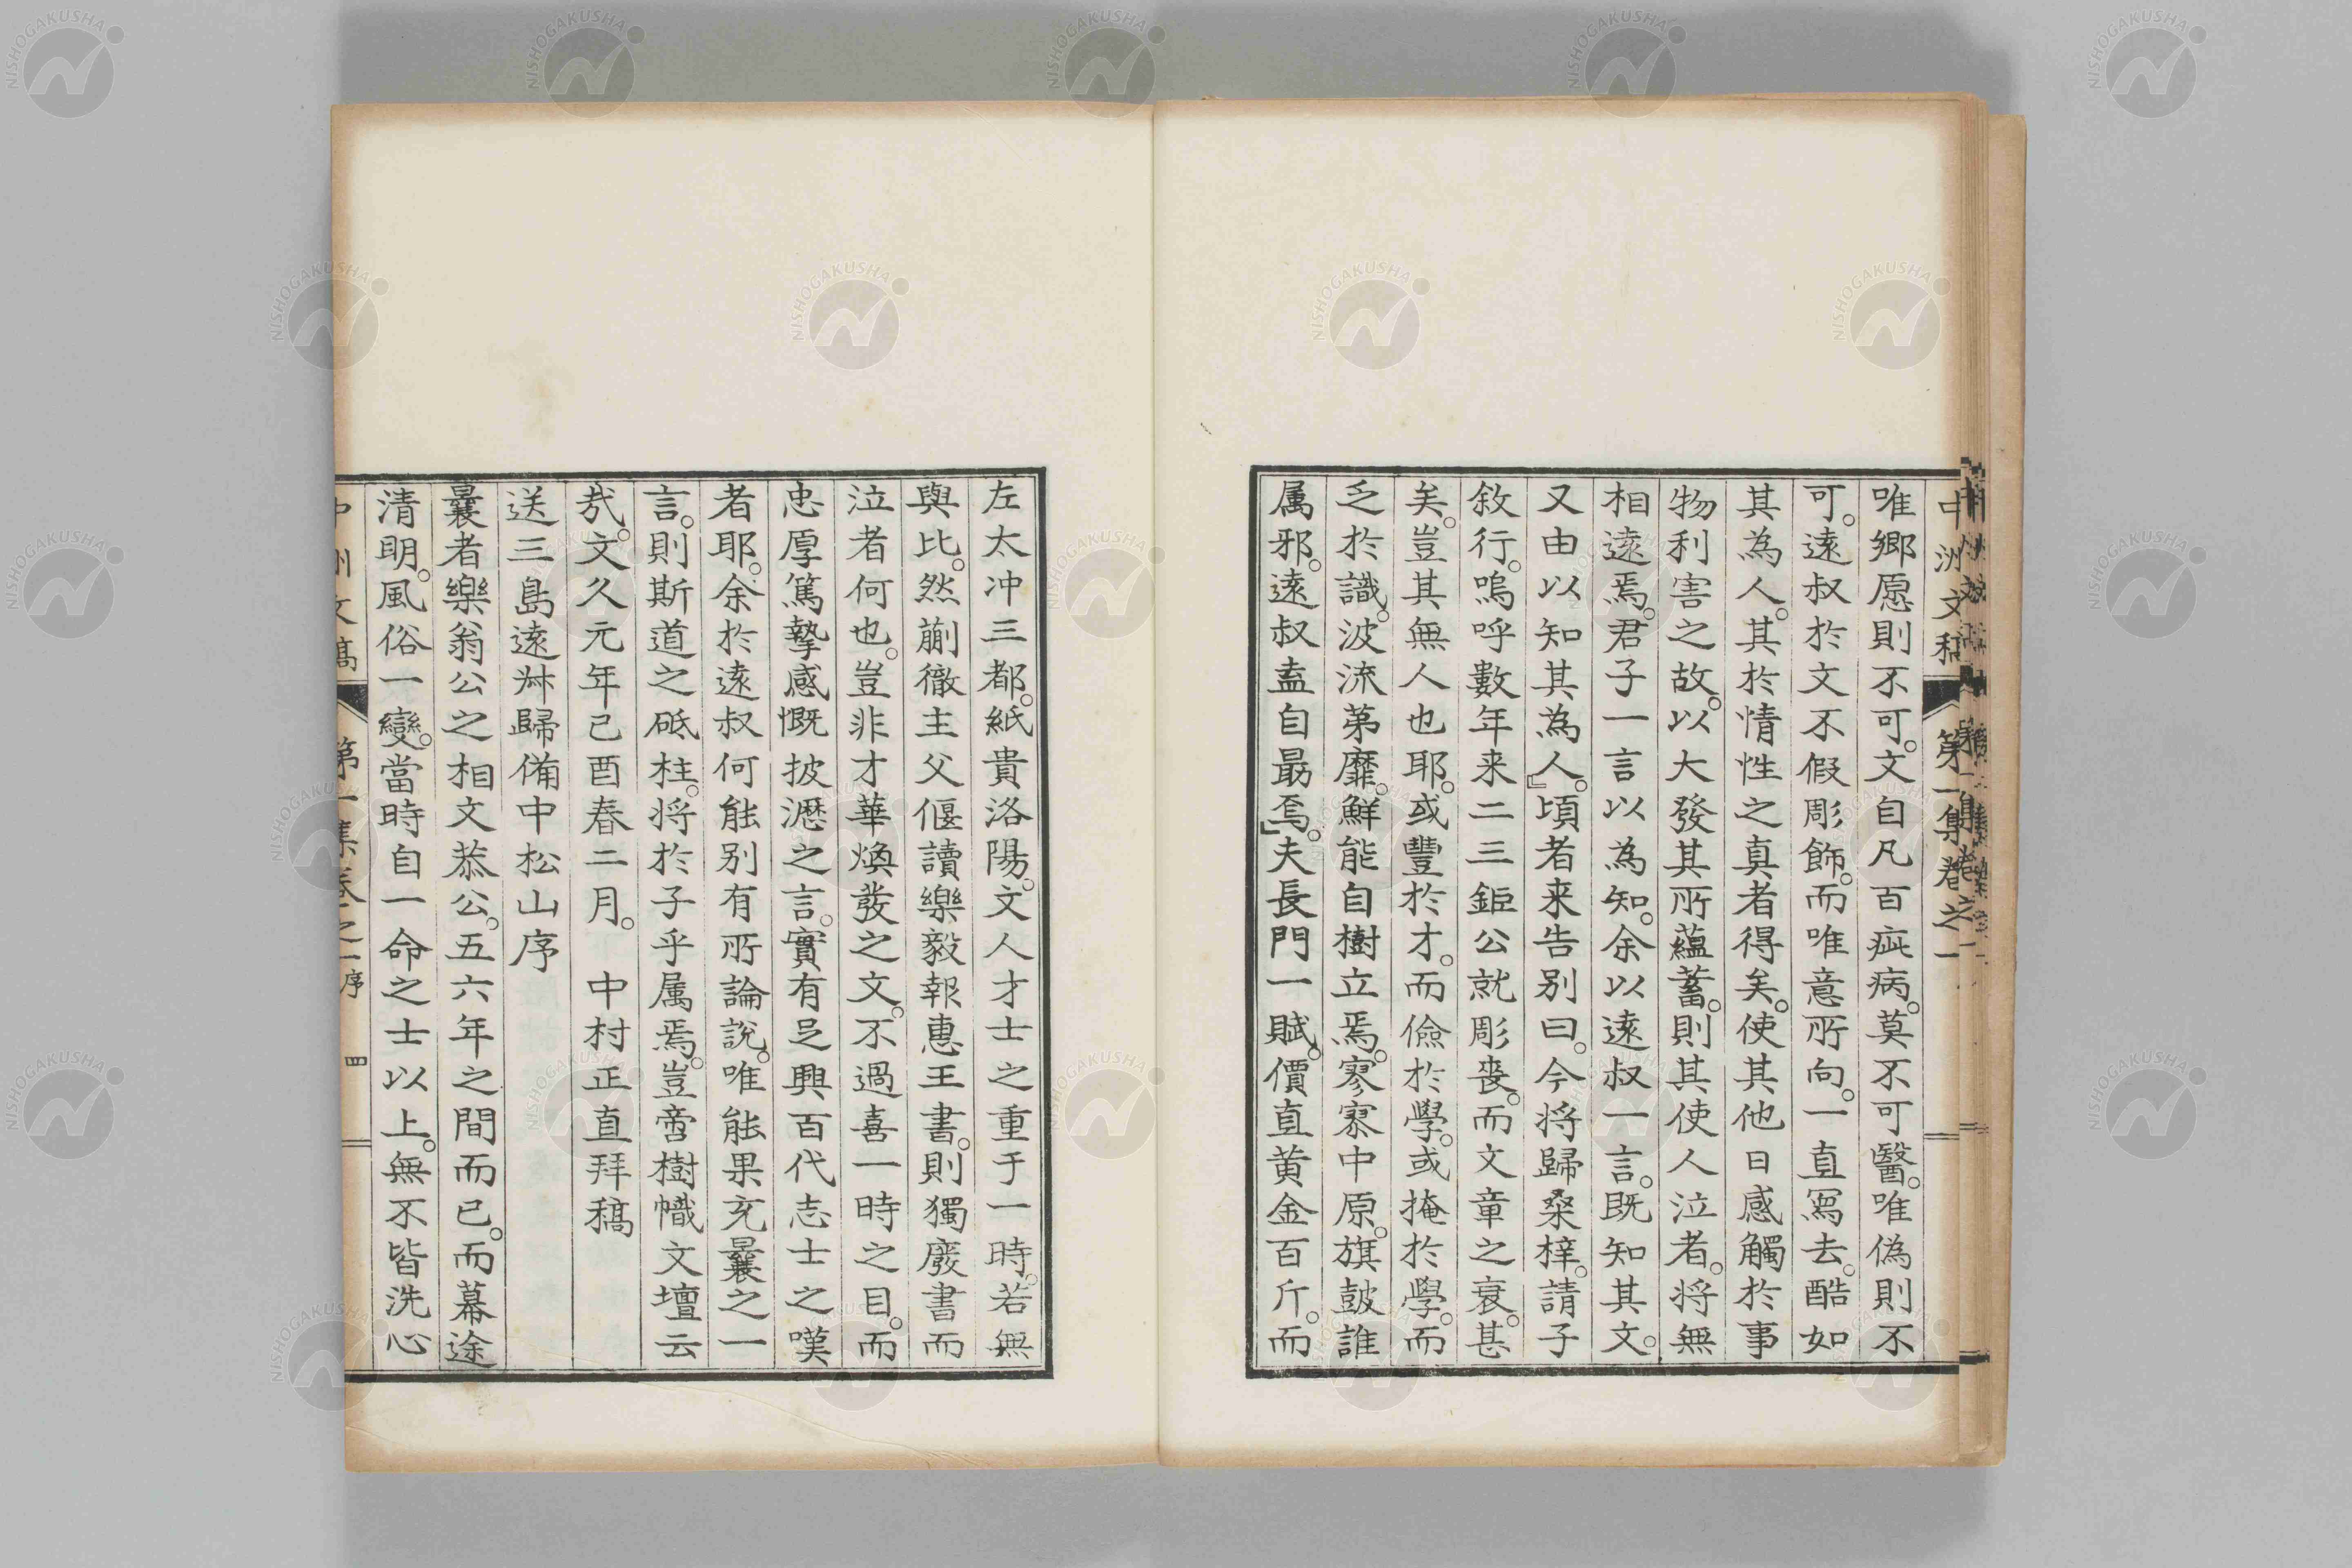 中洲文稿 第一集卷之一
唯鄉愿則不可。文自凡百疵病。莫不可醫。唯偽則不
可。遠叔於文不假彫飾。而唯意所向。一直寫去。酷如
其為人。其於情性之真者得矣。使其他日感觸於事
物利害之故。以大發其所蘊蓄。則其使人泣者。将無
相遠焉。君子一言以為知。余以遠叔一言。既知其文。
又由以知其為人。』頃者来告別曰。今将歸桑梓。請子
敘行。嗚呼數年来二三鉅公就彫喪。而文章之衰。甚
矣。豈其無人也耶。或豐於才。而儉於學。或掩於學。而
乏於識。波流第靡。鮮能自樹立焉。寥寥中原。旗鼓誰
属邪。遠叔盍自勗焉。』夫長門一賦。價直黄金百斤。而
左太冲三都。紙貴洛陽。文人才士之重于一時。若無
與比。然蒯徹主父偃讀樂毅報惠王書。則獨廢書而
泣者何也。豈非才華煥發之文。不過喜一時之目。而
忠厚篤摯感慨披瀝之言。實有足興百代志士之嘆
者耶。余於遠叔何能別有所論說。唯能果充曩之一
言。則斯道之砥柱。将於子乎属焉。豈啻樹幟文壇云
哉。文久元年己酉春二月。 中村正直拜稿
送三島遠叔歸備中松山序
曩者樂翁公之相文恭公。五六年之間而已。而幕途
清明。風俗一變。當時自一命之士以上。無不皆洗心
中洲文稿 第一集卷之一 序 四
NISHOGAKUSHA